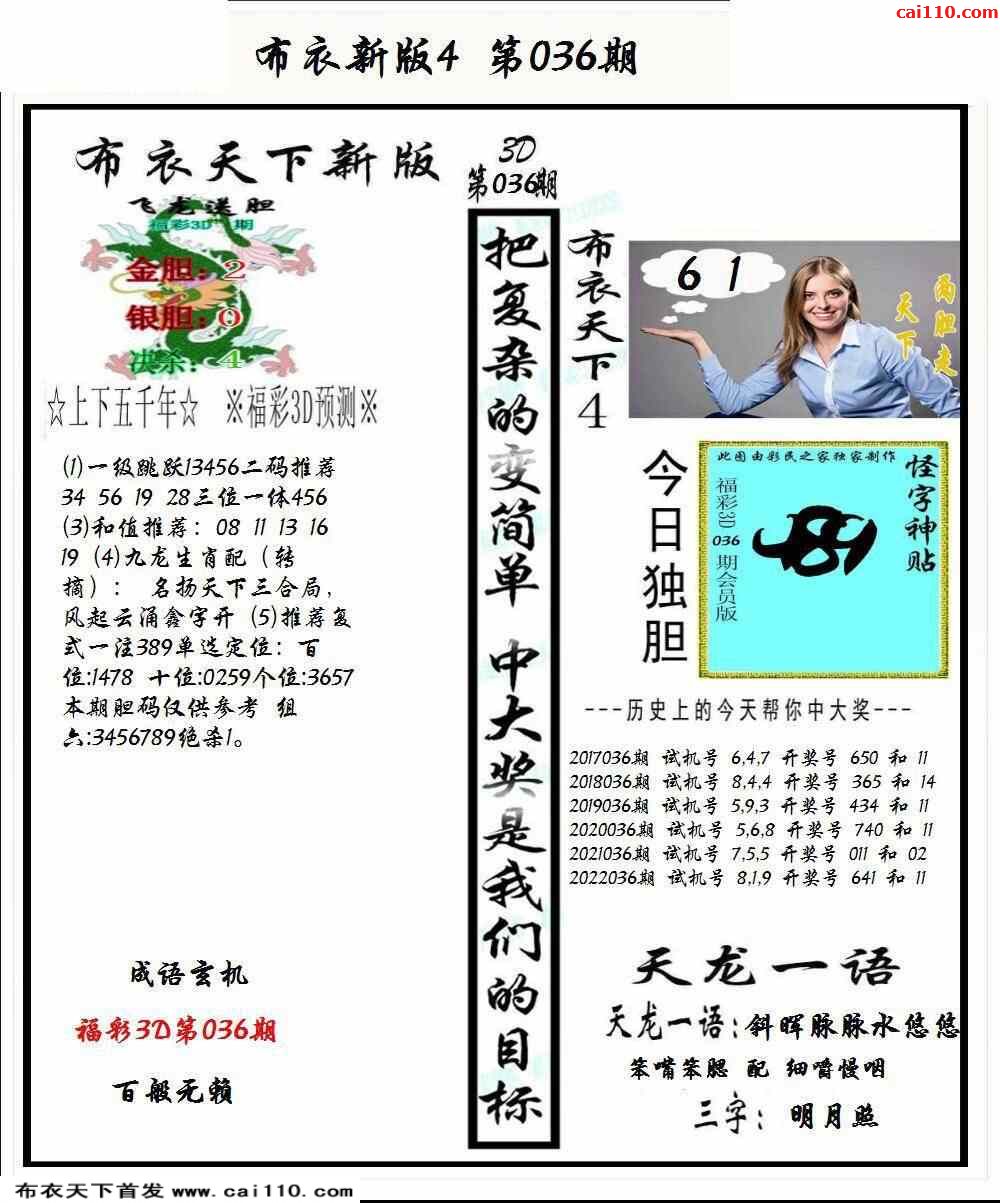 cai110.com
布衣新版4 第036期
布衣天下新版
飞龙送胆
福彩3D 期
金胆：2
银胆：0
决杀：4
☆上下五千年☆ ※福彩3D预测※
(1)一级跳跃13456二码推荐
34 56 19 28三位一体456
(3)和值推荐：08 11 13 16
19 (4)九龙生肖配（转
摘）： 名扬天下三合局，
风起云涌鑫字开 (5)推荐复
式一注389单选定位：百
位:1478 十位:0259个位:3657
本期胆码仅供参考 组
六:3456789绝杀1。
成语玄机
福彩3D第036期
百般无赖
3D
第036期
把复杂的变简单 中大奖是我们的目标
布衣天下4
6 1
两胆走
天下
今日独胆
此图由彩民之家独家制作
怪字神贴
福彩3D 036 期会员版
---历史上的今天帮你中大奖---
2017036期 试机号 6,4,7 开奖号 650 和 11
2018036期 试机号 8,4,4 开奖号 365 和 14
2019036期 试机号 5,9,3 开奖号 434 和 11
2020036期 试机号 5,6,8 开奖号 740 和 11
2021036期 试机号 7,5,5 开奖号 011 和 02
2022036期 试机号 8,1,9 开奖号 641 和 11
天龙一语
天龙一语:斜晖脉脉水悠悠
笨嘴笨腮 配 细嚼慢咽
三字： 明月照
布衣天下首发 www.cai110.com